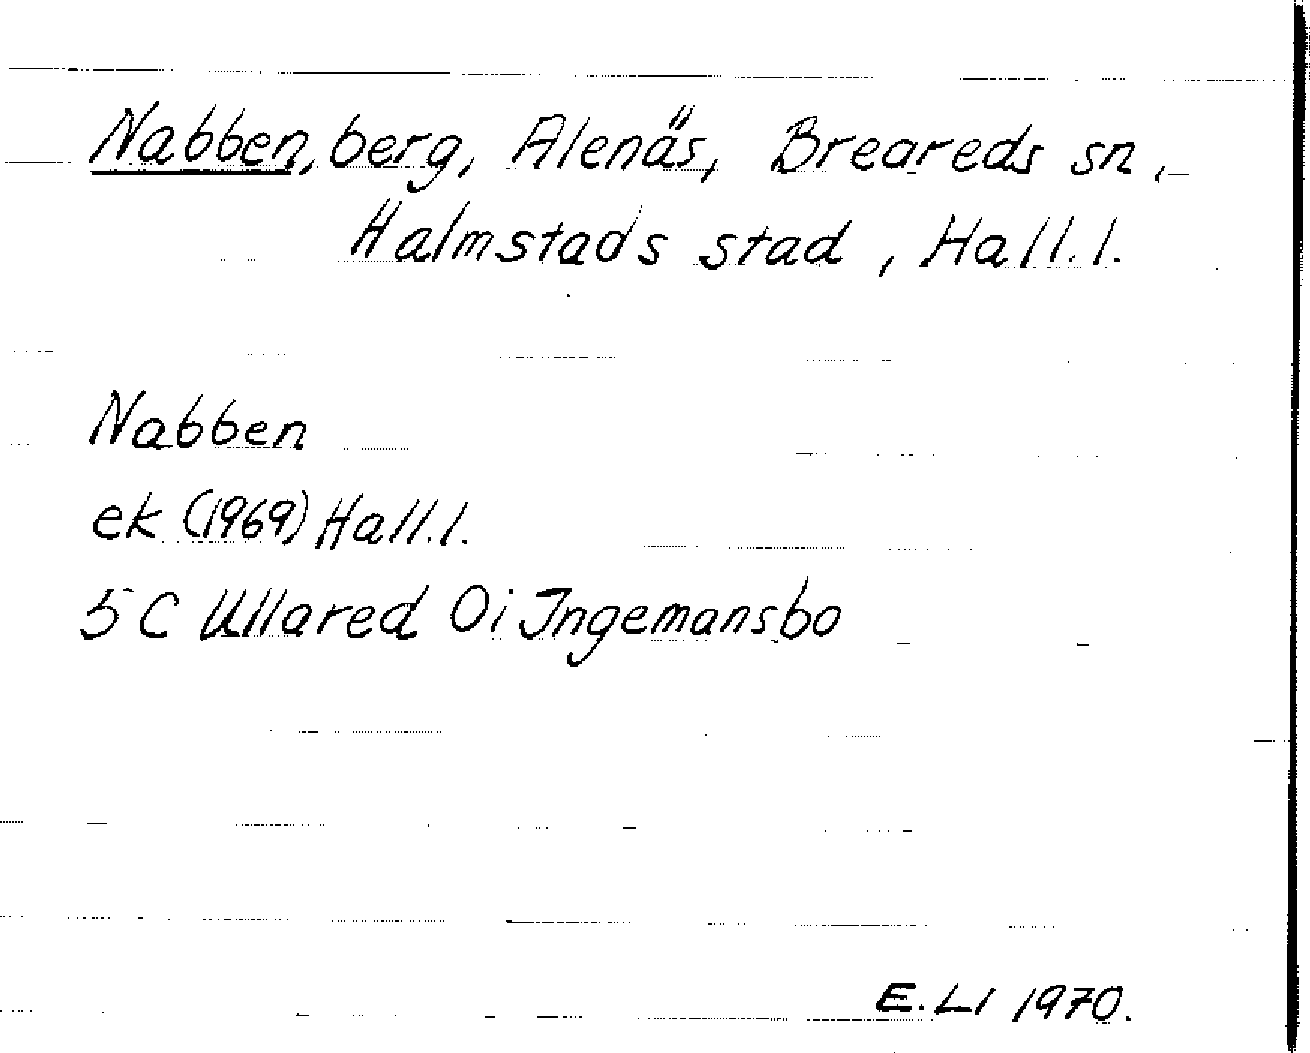 Nabben, berg, Alenäs, Breareds sn,
Halmstads stad, Hall.l.
Nabben
ek (1969) Hall.l.
5C Ullared 0i Ingemansbo
E.LI 1970.